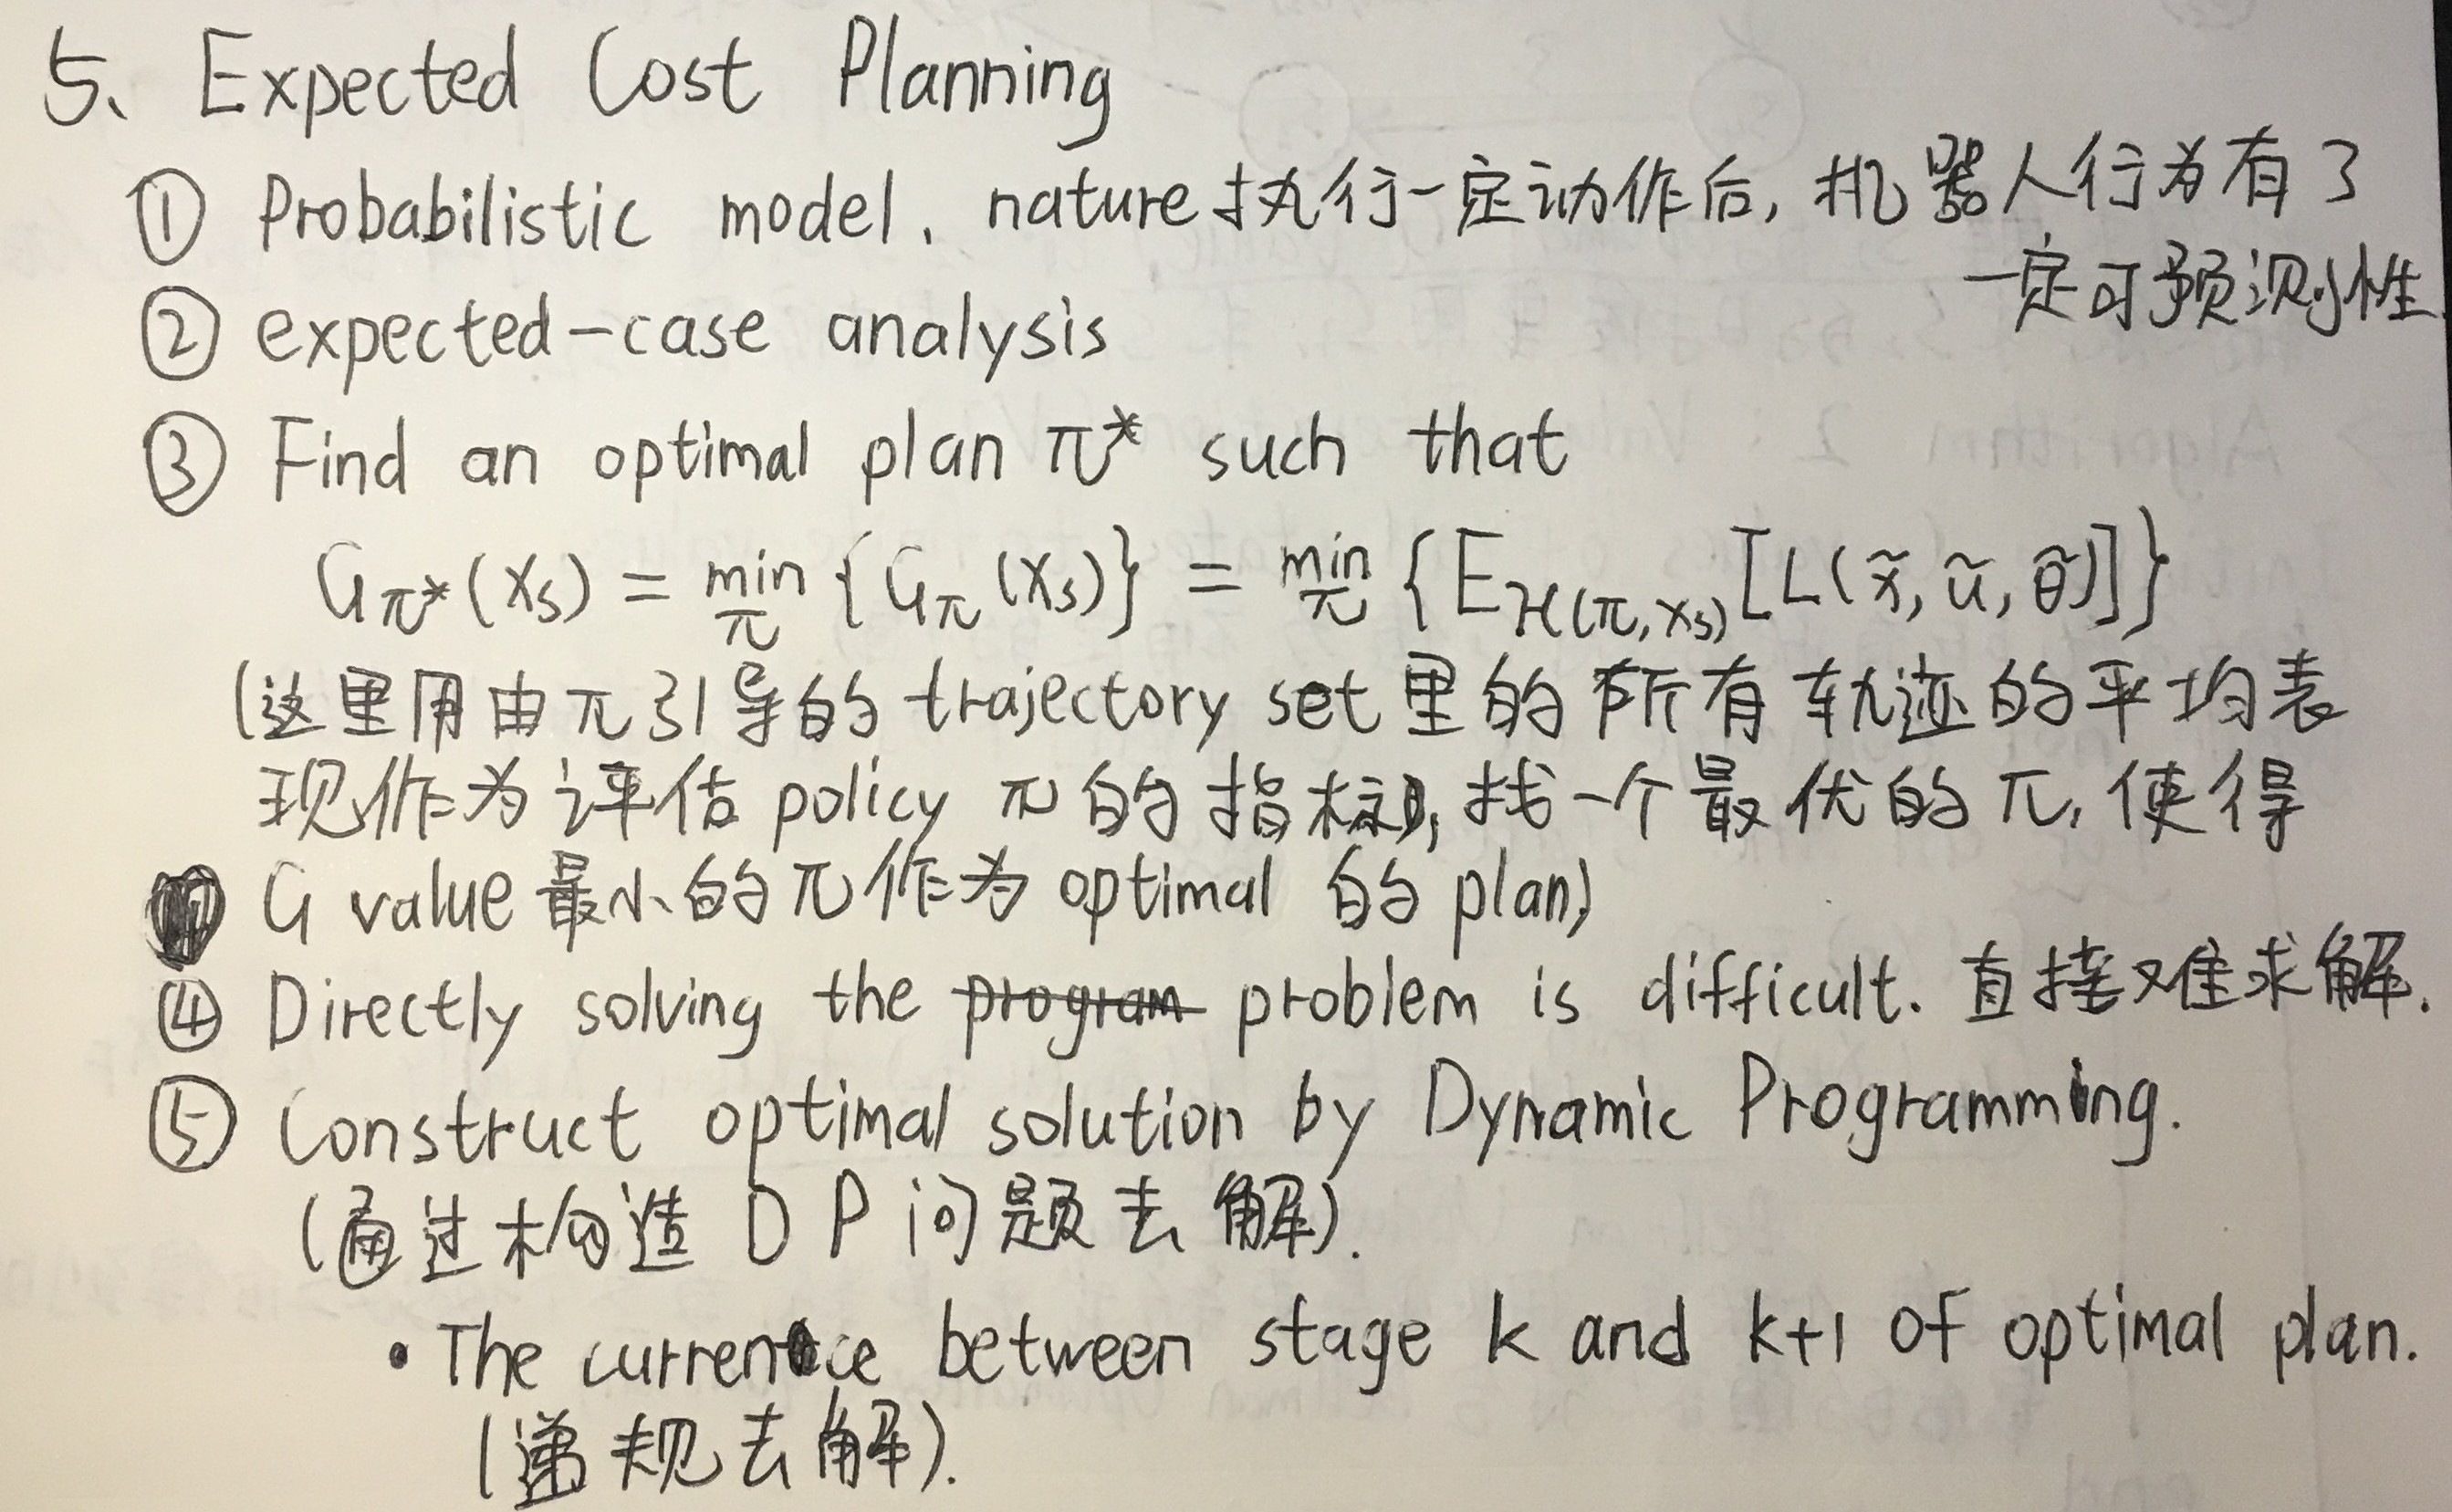 5、Expected Cost Planning
① Probabilistic model. nature执行一定动作后, 机器人行为有了
一定可预测性.
② expected-case analysis
③ Find an optimal plan π* such that
G_{π*}(x_s) = min_π {G_π(x_s)} = min_π {E_{H(π,x_s)}[L(x̃, ũ, θ̃)]}
(这里用由π引导的 trajectory set 里的所有轨迹的平均表
现作为评估 policy π的指标, 找一个最优的π, 使得
G value 最小的π作为 optimal 的 plan)
④ Directly solving the program problem is difficult. 直接难求解.
⑤ Construct optimal solution by Dynamic Programming.
(通过构造 DP问题去解).
• The currence between stage k and k+1 of optimal plan.
(递规去解).